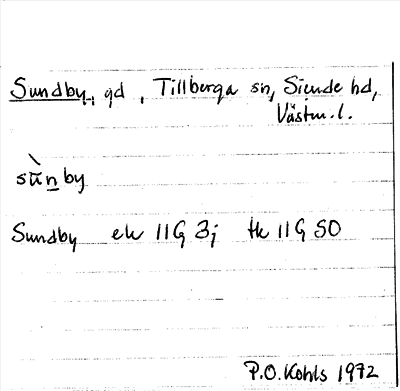 Sundby, gd, Tillberga sn, Siende hd,
Västm.l.
sùnby
Sundby ek 11G 3j tk 11G SO
P.O. Kohls 1972